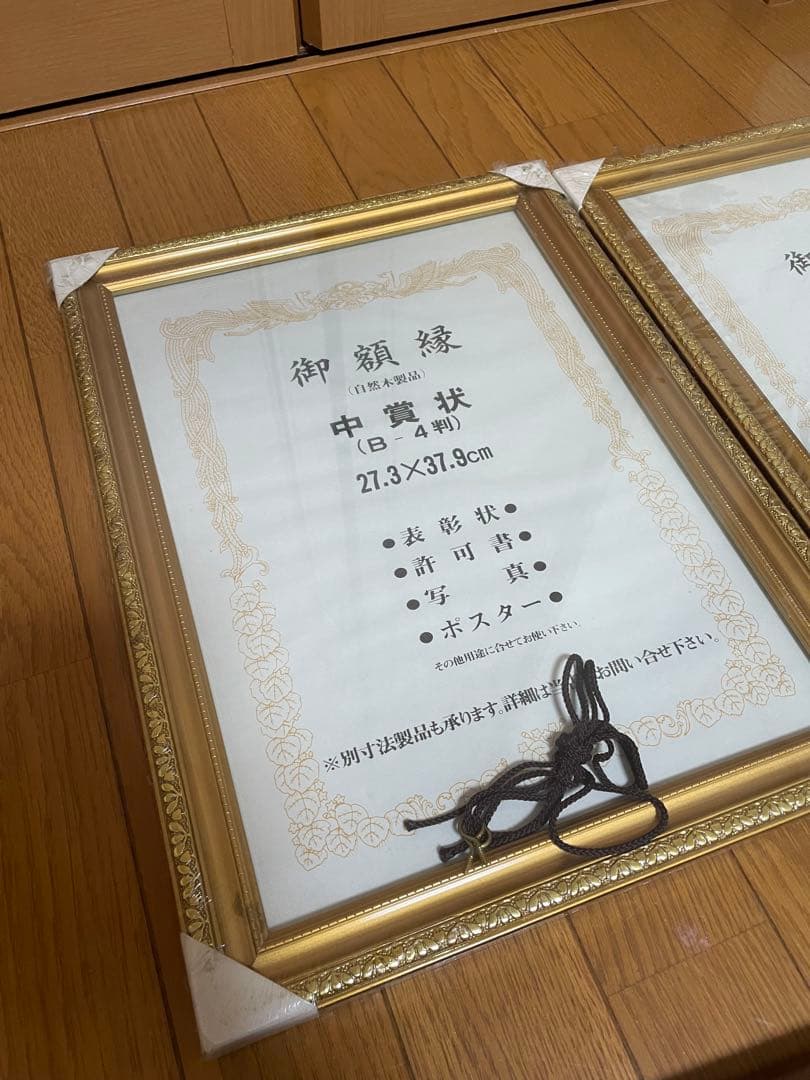 御額縁
(自然木製品)
中賞状
(B-4判)
27.3×37.9cm
●表彰状●
●許可書●
●写真●
●ポスター●
その他用途に合せてお使い下さい。
※別寸法製品も承ります。詳細は当 お問い合せ下さい。
御